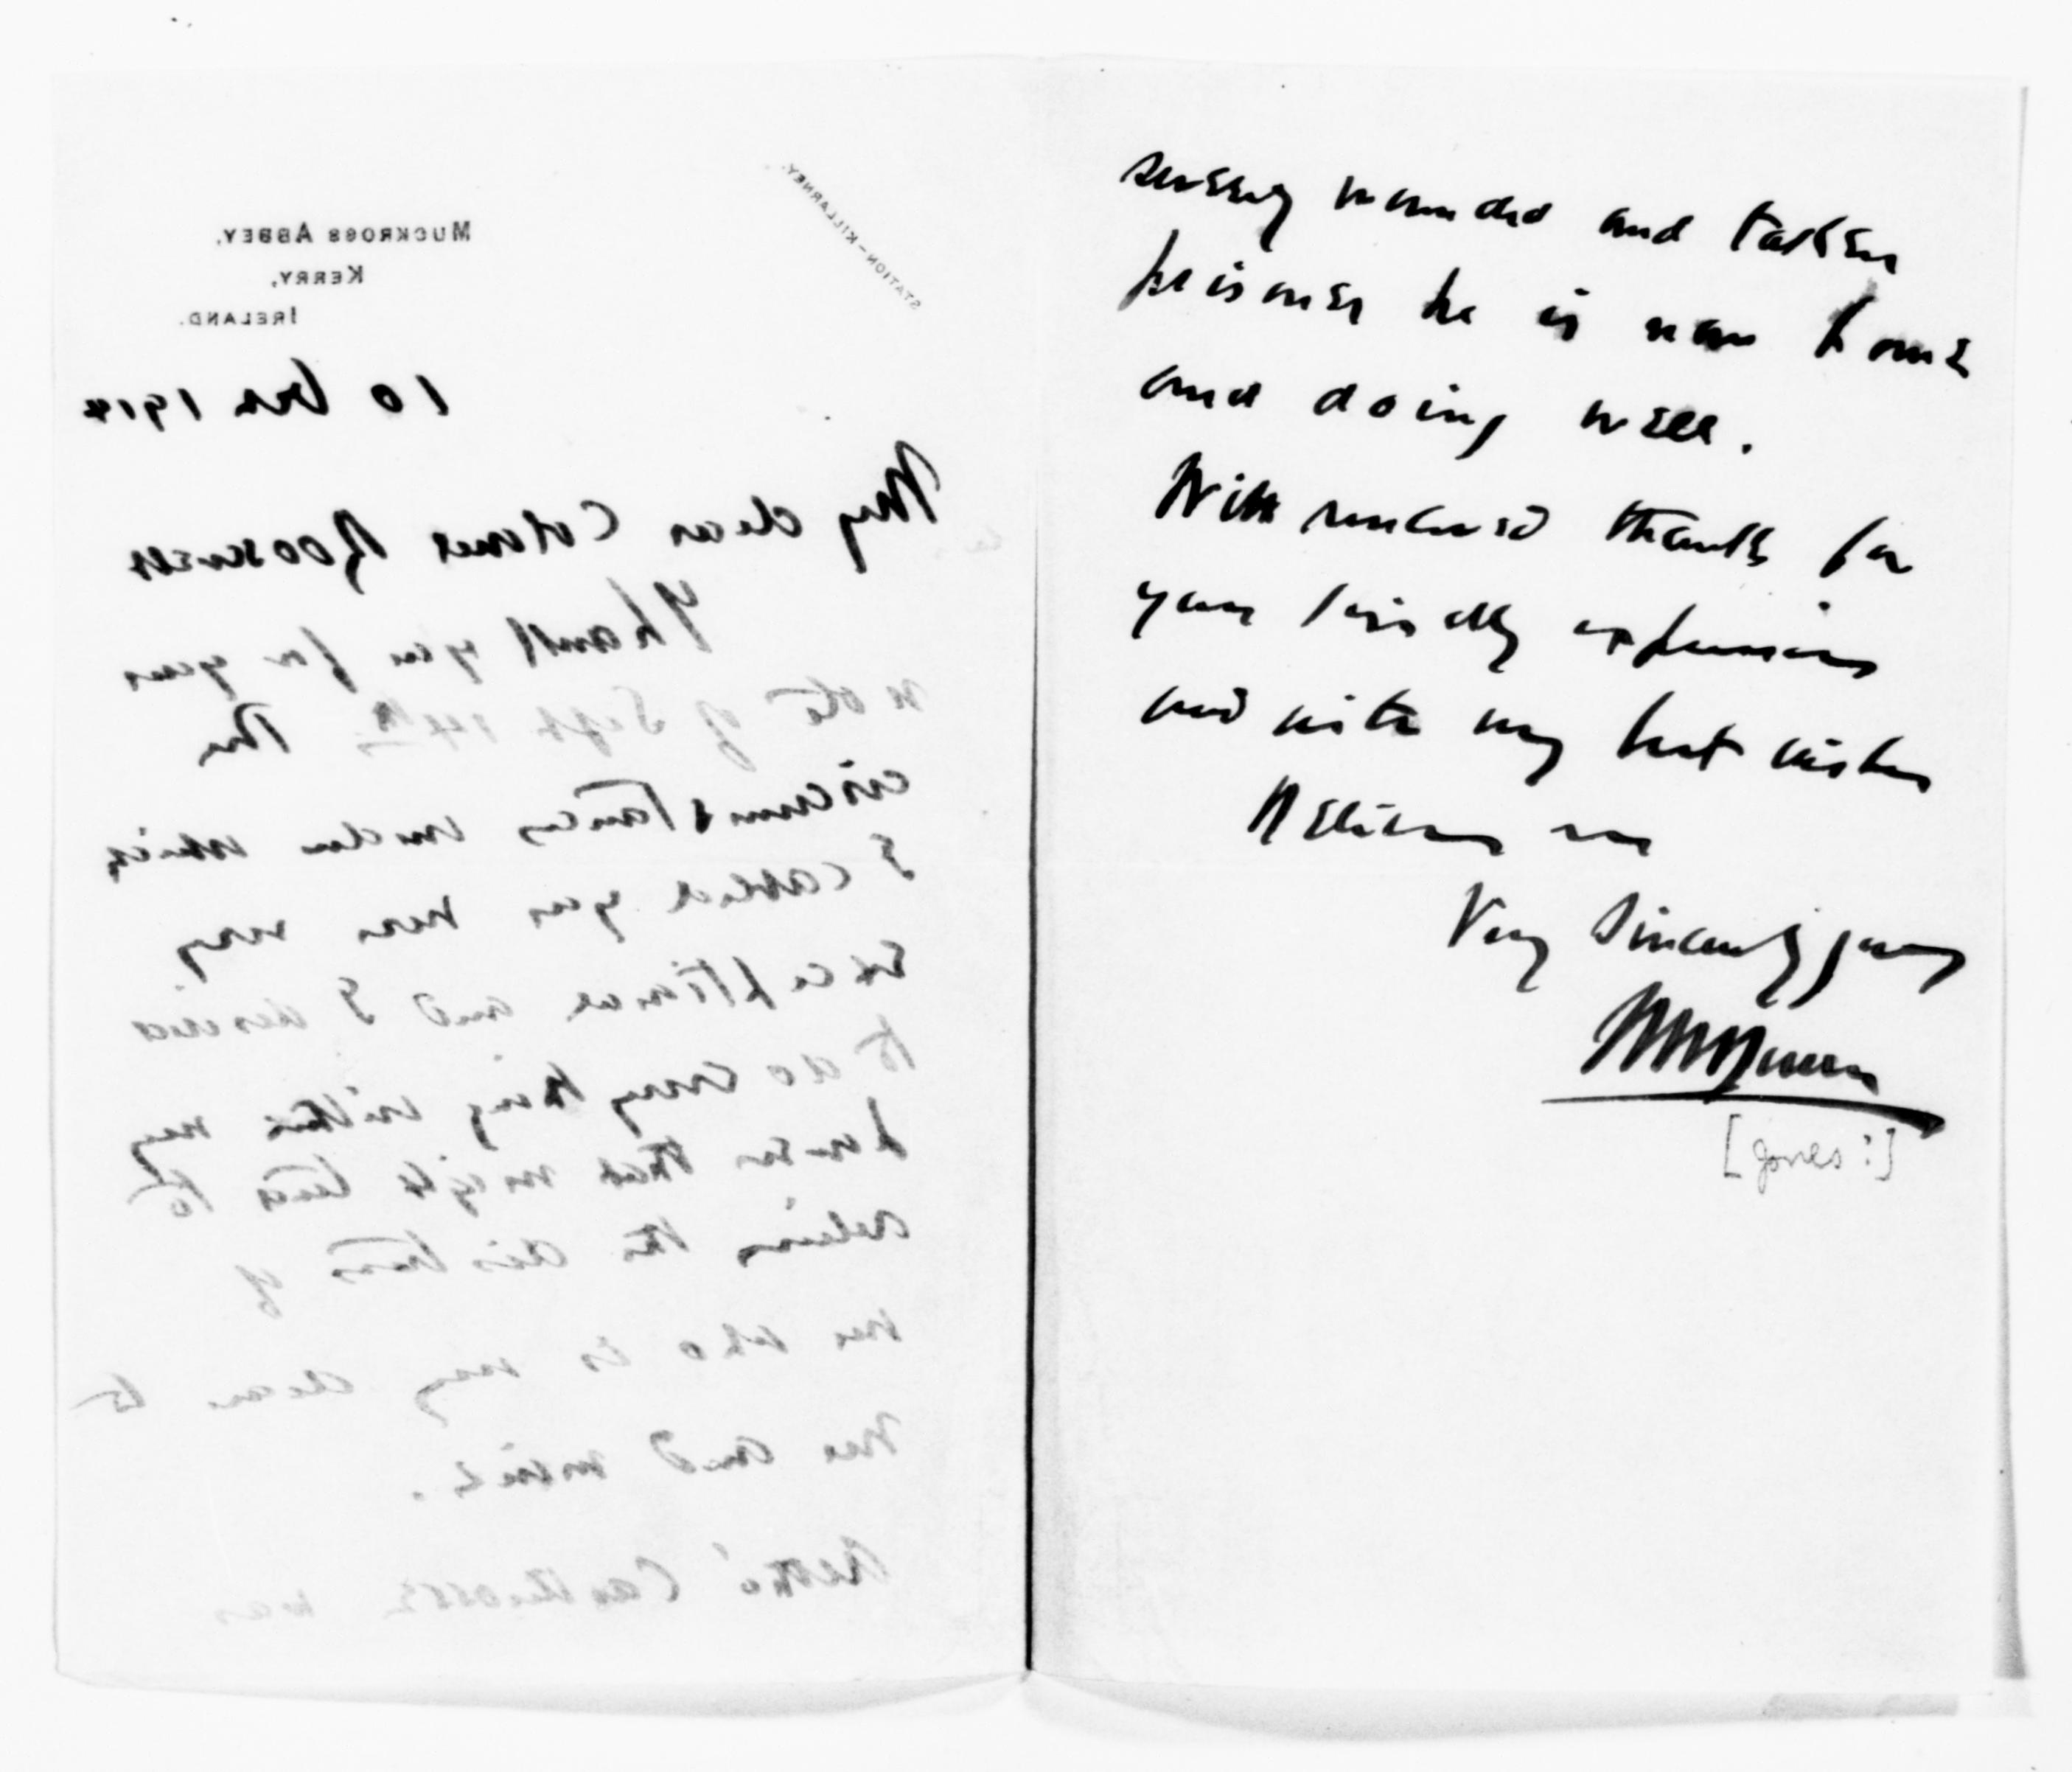 STATION - KILLARNEY.
MUCKROSS ABBEY,
KERRY,
IRELAND.
10 1914
My dear Colonel Roosevelt
Thank you for your
note of Sept. 14th. The
circumstances under which
I cabled you were very
exceptional and I desired
to do everything within my
power that might tend to
relieve the distress of
one who is very dear to
me and mine.
Castlerosse was
wounded and taken
prisoner he is now home
and doing well.
With renewed thanks for
your kindly expressions
and with my best wishes
Believe me
Very Sincerely yours
[Jones?]